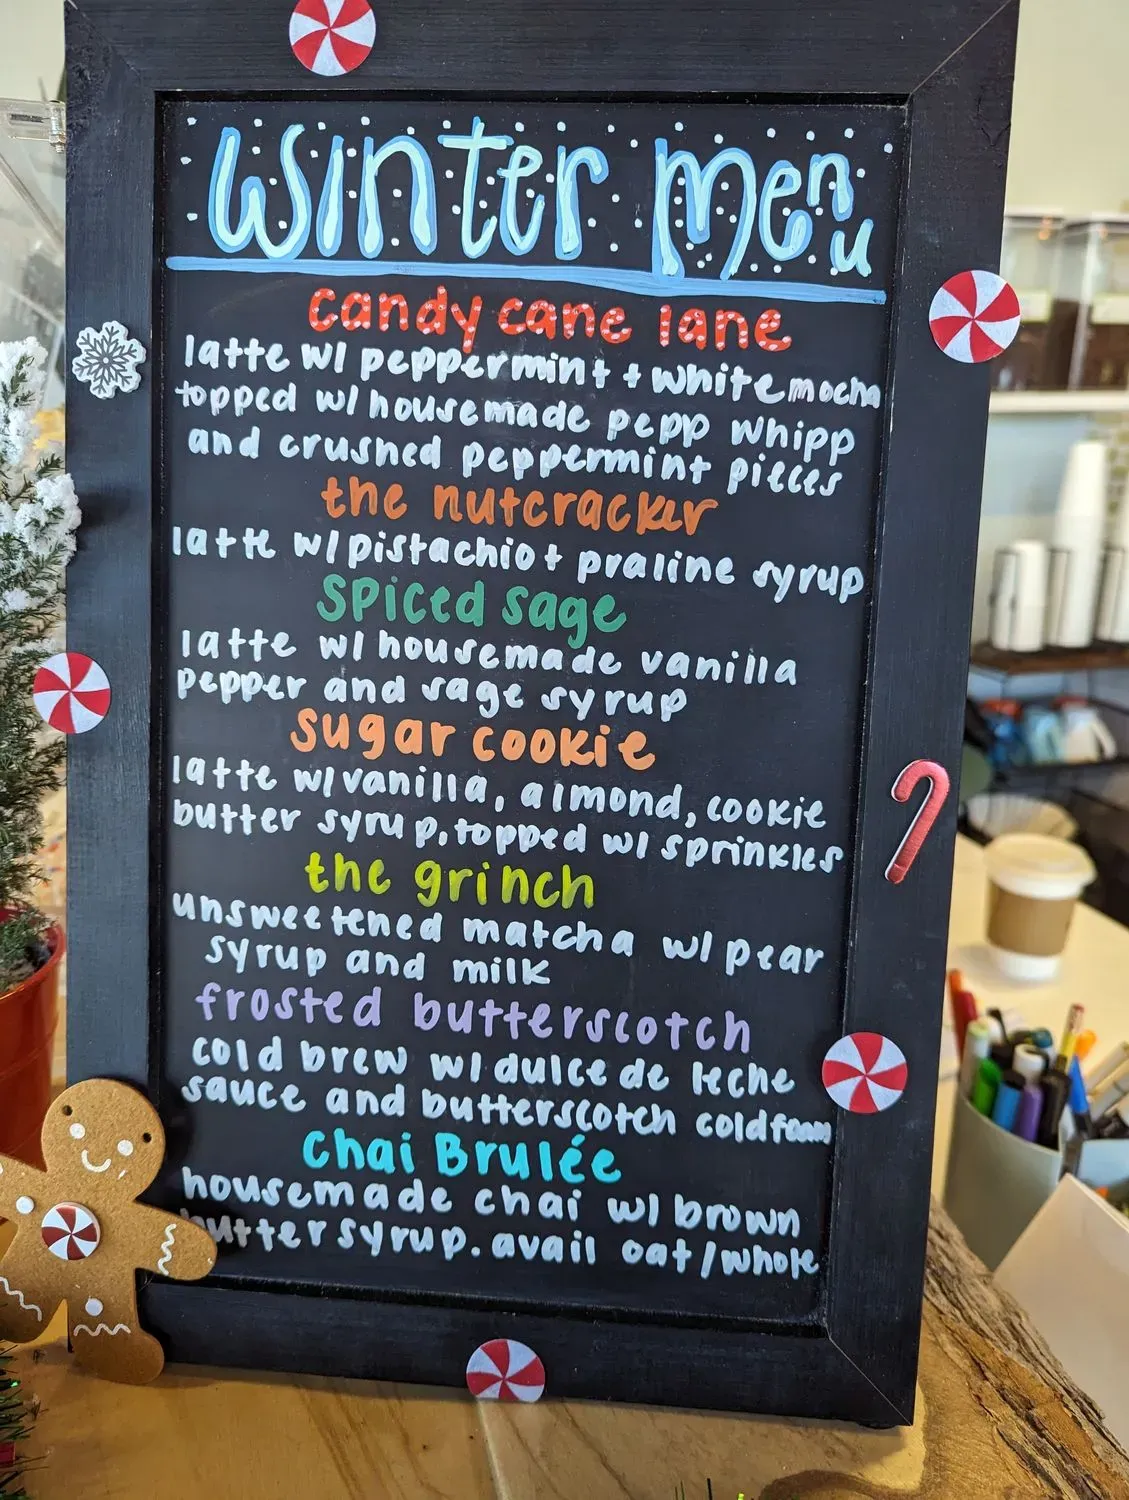 Winter Menu
candy cane lane
latte w/ peppermint + white mocha
topped w/ housemade pepp whipp
and crushed peppermint pieces
the nutcracker
latte w/ pistachio + praline syrup
spiced sage
latte w/ housemade vanilla
pepper and sage syrup
sugar cookie
latte w/ vanilla, almond, cookie
butter syrup, topped w/ sprinkles
the grinch
unsweetened matcha w/ pear
syrup and milk
frosted butterscotch
cold brew w/ dulce de leche
sauce and butterscotch cold foam
Chai Brulée
housemade chai w/ brown
butter syrup. avail oat/whole